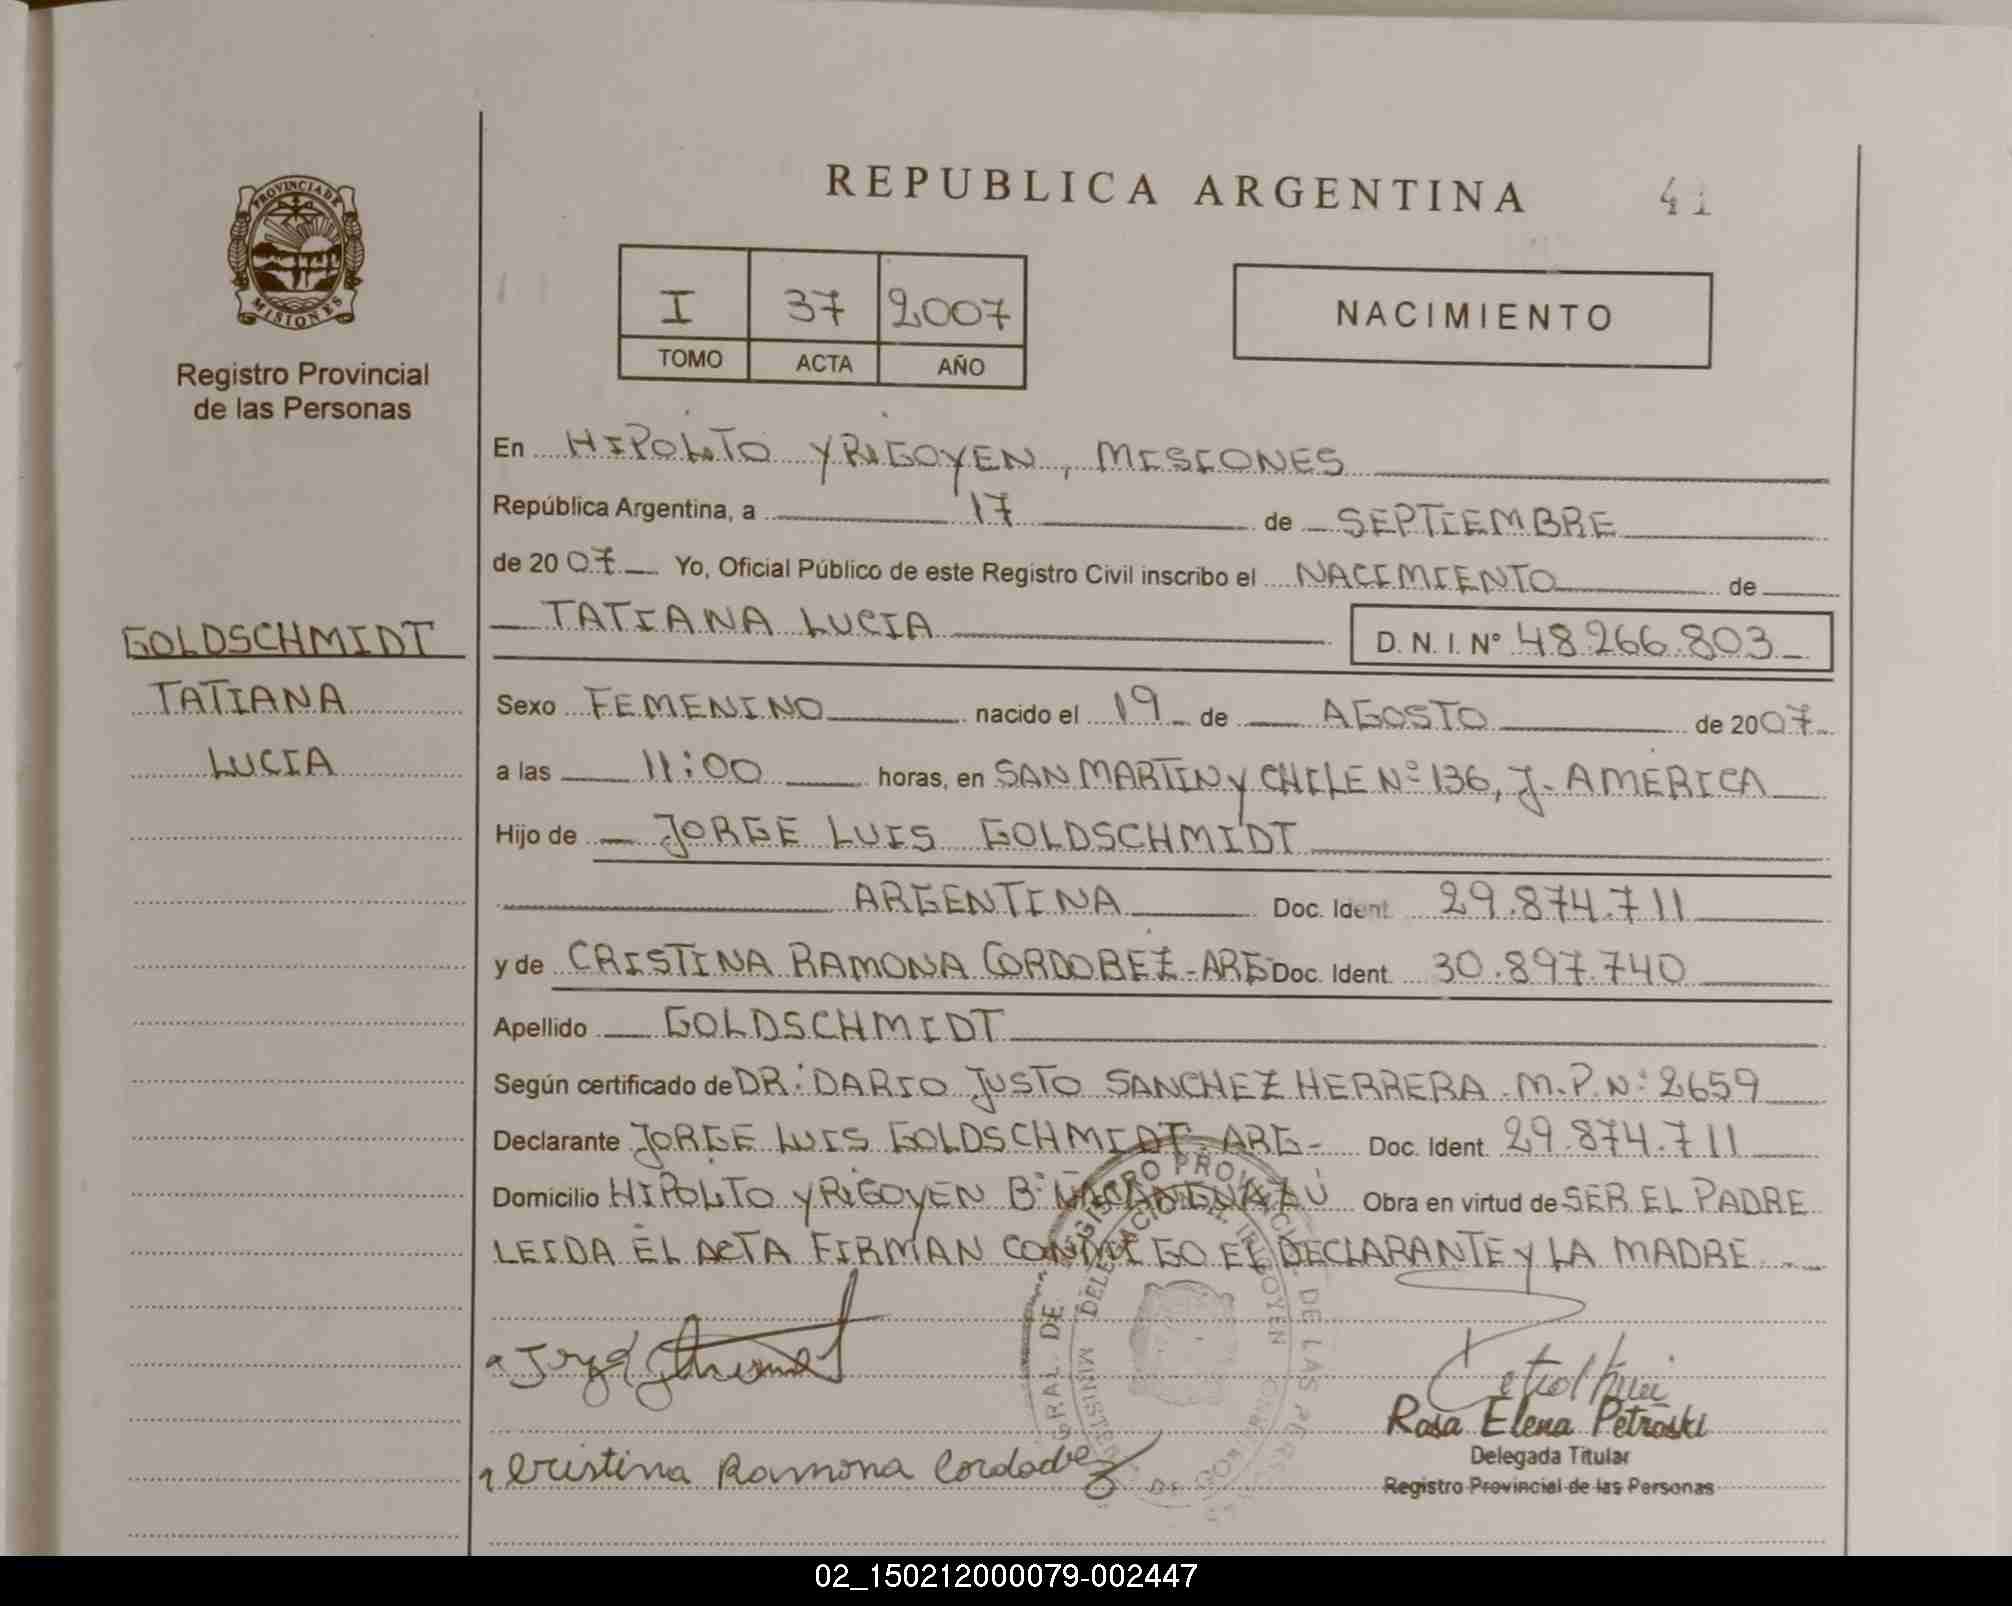 REPUBLICA ARGENTINA 41
PROVINCIA DE
MISIONES
Registro Provincial
de las Personas
I 37 2007
TOMO ACTA AÑO
NACIMIENTO
En HIPOLITO YRIGOYEN, MISIONES
República Argentina, a 17 de SEPTIEMBRE
de 2007 Yo, Oficial Público de este Registro Civil inscribo el NACIMIENTO de
TATIANA LUCIA D. N. I. Nº 48.266.803
GOLDSCHMIDT
TATIANA
LUCIA
Sexo FEMENINO nacido el 19 de AGOSTO de 2007
a las 11:00 horas, en SAN MARTIN y CHILE Nº 136, J. AMERICA
Hijo de JORGE LUIS GOLDSCHMIDT
ARGENTINA Doc. Ident. 29.874.711
y de CRISTINA RAMONA CORDOBEZ-ARG Doc. Ident. 30.897.740
Apellido GOLDSCHMIDT
Según certificado de DR. DARIO JUSTO SANCHEZ HERRERA M.P. Nº 2659
Declarante JORGE LUIS GOLDSCHMIDT-ARG- Doc. Ident. 29.874.711
Domicilio HIPOLITO YRIGOYEN Bº Obra en virtud de SER EL PADRE
LEIDA EL ACTA FIRMAN CONMIGO EL DECLARANTE y LA MADRE
Cristina Ramona Cordobez
Rosa Elena Petroski
Delegada Titular
Registro Provincial de las Personas
GRAL. DE REGISTRO PROVINCIAL DE LAS PERS
MINISTERIO DE GOBIERNO
DELEGACION H. IRIGOYEN
02_150212000079-002447